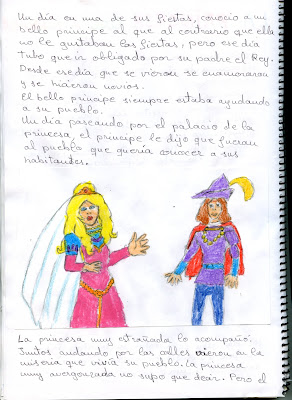 Un día en una de sus fiestas, conoció a un
bello príncipe al que al contrario que ella
no le gustaban las fiestas, pero ese día
tubo que ir obligado por su padre el Rey.
Desde ese día que se vieron se enamoraron
y se hicieron novios.
El bello príncipe siempre estaba ayudando
a su pueblo.
Un día paseando por el palacio de la
princesa, el príncipe le dijo que fueran
al pueblo que quería conocer a sus
habitantes.
La princesa muy estrañada lo acompañó.
Juntos andando por las calles vieron en la
miseria que vivía su pueblo. la princesa
muy avergonzada no supo que decir. Pero el